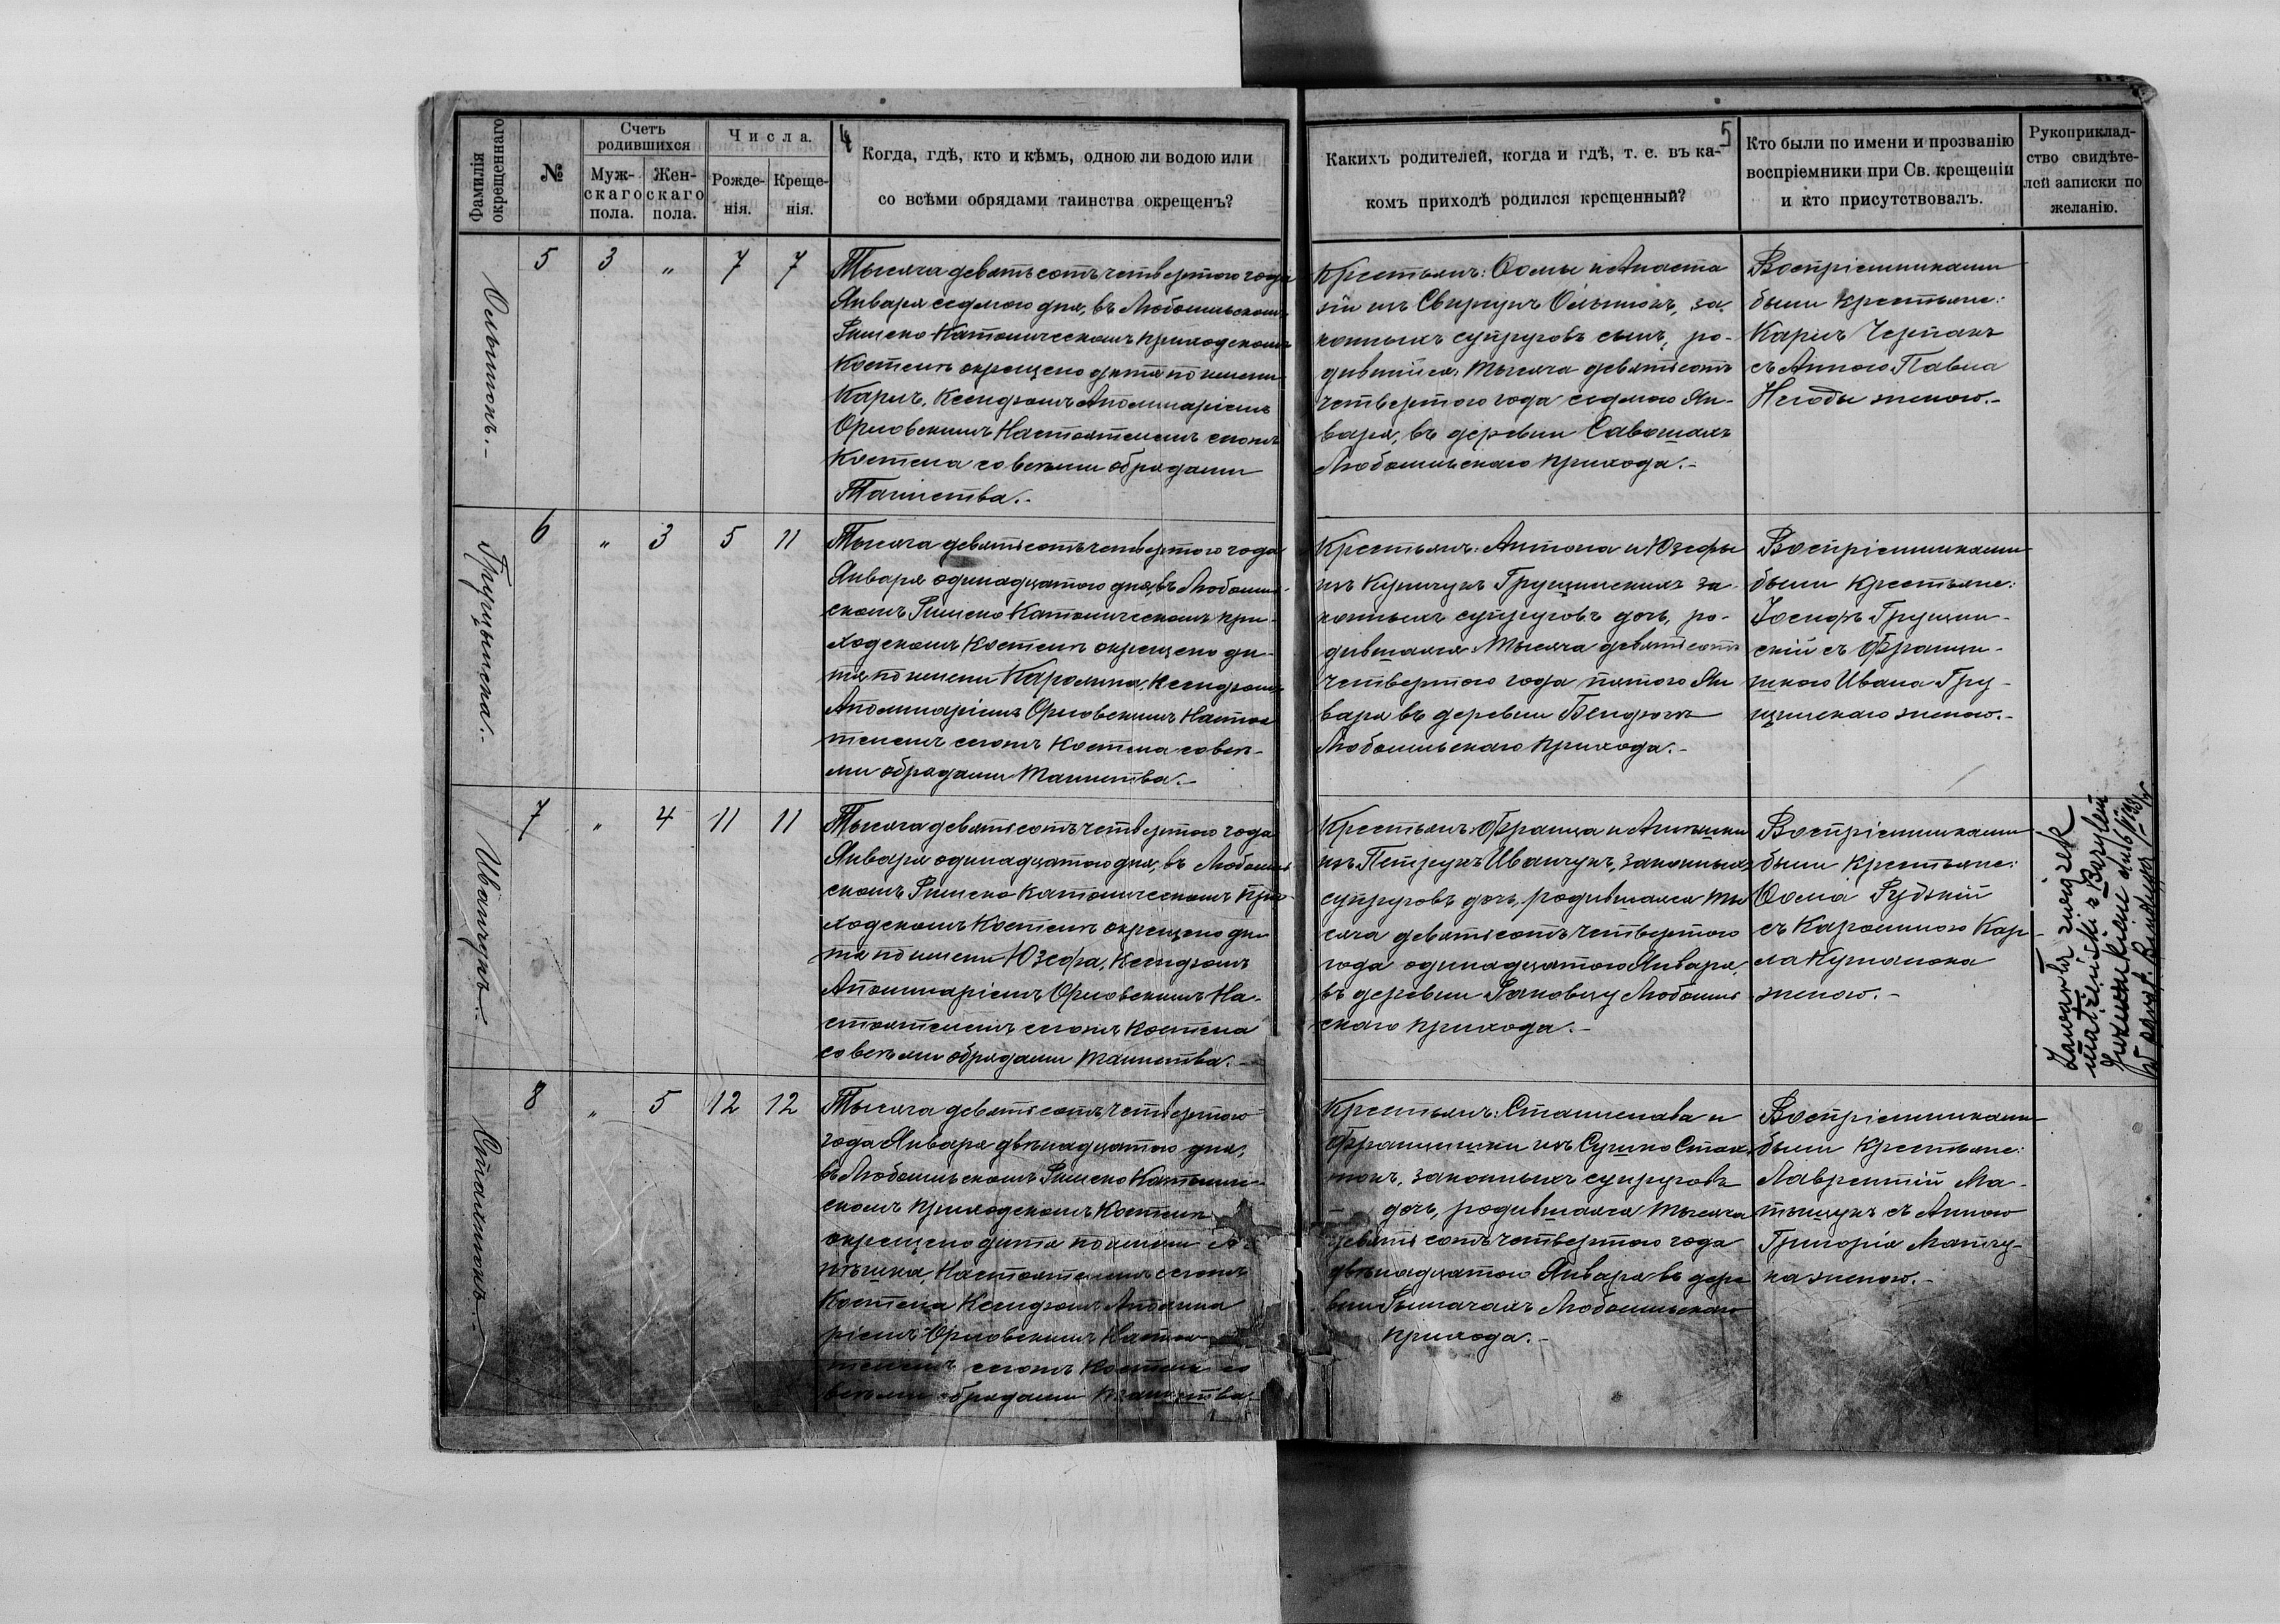 4
5
Фамилія окрещеннаго
№
Счетъ родившихся
Муж-
скаго
пола.
Жен-
скаго
пола.
Числа.
Рожде-
нія.
Креще-
нія.
Когда, гдѣ, кто и кѣмъ, одною ли водою или
со всѣми обрядами таинства окрещенъ?
Какихъ родителей, когда и гдѣ, т. е. въ ка-
комъ приходѣ родился крещенный?
Кто были по имени и прозванію
воспріемники при Св. крещеніи
и кто присутствовалъ.
Рукоприклад-
ство свидѣте-
лей записки по
желанію.
5 3 " 7 7
Тысяча девятьсотъ четвертого года
Января седмого дня, въ Любомльскомъ
Римско Католическомъ приходскомъ
Костелѣ окрещено дитя по имени
Карлъ, Ксендзомъ Аполинаріемъ
Орловскимъ Настоятелемъ сегожъ
Костела со всѣми обрядами
Таинства.-
Крестьянъ: Ѳомы и Анаста
сіи изъ Свиргунъ Ольтюкъ, за-
конныхъ супруговъ сынъ, ро-
дившійся, тысяча девятьсотъ
четвертого года седмого Ян-
варя, въ деревни Савошахъ
Любомльскаго прихода.-
Воспріемниками
были крестьяне:
Карлъ Черпакъ
съ Анною Павла
Негоды женою.-
Грущинска.-
6 " 3 5 11
Тысяча девятьсотъ четвертого года
Января одинадцатого дня, въ Любомль-
скомъ Римско Католическомъ при-
ходскомъ Костелѣ окрещено ди-
тя по имени Каролина, Ксендзомъ
Аполинаріемъ Орловскимъ Настоя
телемъ сегожъ Костела со всѣ-
ми обрядами таинства.-
Крестьянъ: Антона и Юзефы
изъ Кушчукъ Грущинскихъ за
конныхъ супруговъ дочь, ро-
дившаяся тысяча девятьсотъ
четвертого года пятого Ян
варя въ деревни Бендюгѣ
Любомльскаго прихода.-
Воспріемниками
были крестьяне:
Іосифъ Грущин-
скій съ Францы-
шкою Ивана Гру-
щинскаго женою.-
Иванчукъ.-
7 " 4 11 11
Тысяча девятьсотъ четвертого года
Января одинадцатого дня, въ Любомль
скомъ Римско-Католическомъ При
ходскомъ Костелѣ окрещено ди
тя по имени Юзефа, Ксендзомъ
Аполинаріемъ Орловскимъ На-
стоятелемъ сегожъ Костела
со всѣми обрядами таинства.-
Крестьянъ: Франца и Агнѣшки
изъ Петрукъ Иванчукъ, законныхъ
супруговъ дочь, родившаяся ты
сяча девятьсотъ четвертого
года одинадцатого Января,
въ деревни Раковцу Любомль
скаго прихода.-
Воспріемниками
были крестьяне:
Ѳома Рудскій
съ Каролиною Кар
ла
женою.-
Zawarła związek
małżeński z Bazylem
8 " 5 12 12
Тысяча девятьсотъ четвертого
года Января двѣнадцатого дня,
въ Любомльскомъ Римско Католиче
скомъ приходскомъ Костелѣ
окрещено дитя по имени А-
гнѣшка, Настоятелемъ сегожъ
Костела Ксендзомъ Аполина
ріемъ Орловскимъ Настоя
телемъ сегожъ Костела со
всѣми обрядами таинства.
Крестьянъ: Станислава и
Францишки изъ Сушко
законныхъ супруговъ
дочь, родившаяся тысяча
девятьсотъ четвертого года
двѣнадцатого Января въ дере
вни Рымачахъ Любомльскаго
прихода.-
Воспріемниками
были крестьяне:
Лаврентій Ма-
тыщукъ съ Анною
Григорія Матчу-
ка женою.-